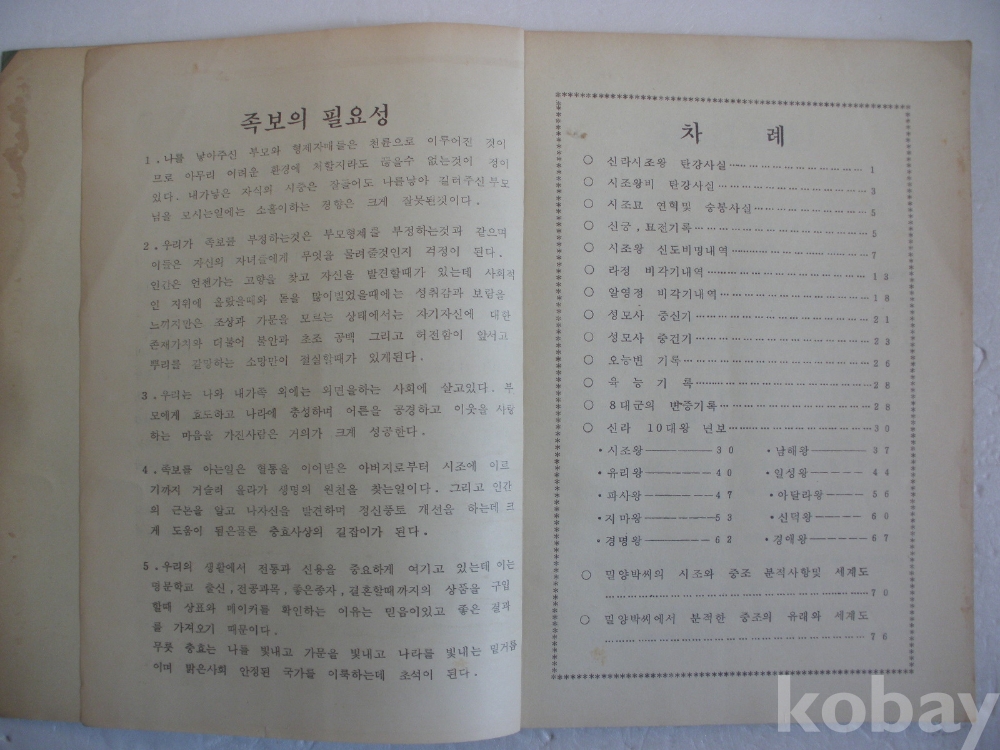 족보의 필요성
1. 나를 낳아주신 부모와 형제자매들은 천륜으로 이루어진 것이
므로 아무리 어려운 환경에 처할지라도 끊을수 없는것이 정이
있다. 내가낳은 자식의 시중은 잘들어도 나를낳아 길러주신 부모
님을 모시는일에는 소홀이하는 경향은 크게 잘못된것이다.
2. 우리가 족보를 부정하는것은 부모형제를 부정하는것과 같으며
이들은 자신의 자녀들에게 무엇을 물려줄것인지 걱정이 된다.
인간은 언젠가는 고향을 찾고 자신을 발견할때가 있는데 사회적
인 지위에 올랐을때와 돈을 많이벌었을때에는 성취감과 보람을
느끼지만은 조상과 가문을 모르는 상태에서는 자기자신에 대한
존재가치와 더불어 불안과 초조 공백 그리고 허전함이 앞서고
뿌리를 갈망하는 소망만이 절실할때가 있게된다.
3. 우리는 나와 내가족 외에는 외면을하는 사회에 살고있다. 부
모에게 효도하고 나라에 충성하며 어른을 공경하고 이웃을 사랑
하는 마음을 가진사람은 거의가 크게 성공한다.
4. 족보를 아는일은 혈통을 이어받은 아버지로부터 시조에 이르
기까지 거슬러 올라가 생명의 원천을 찾는일이다. 그리고 인간
의 근본을 알고 나자신을 발견하며 정신풍토 개선을 하는데 크
게 도움이 됨은물론 충효사상의 길잡이가 된다.
5. 우리의 생활에서 전통과 신용을 중요하게 여기고 있는데 이는
명문학교 출신, 전공과목, 좋은종자, 결혼할때까지의 상품을 구입
할때 상표와 메이커를 확인하는 이유는 믿음이있고 좋은 결과
를 가져오기 때문이다.
무릇 충효는 나를 빛내고 가문을 빛내고 나라를 빛내는 밑거름
이며 밝은사회 안정된 국가를 이룩하는데 초석이 된다.
차 례
○ 신라시조왕 탄강사실 1
○ 시조왕비 탄강사실 3
○ 시조묘 연혁및 숭봉사실 5
○ 신궁, 묘전기록 5
○ 시조왕 신도비명내역 7
○ 라정 비각기내역 13
○ 알영정 비각기내역 18
○ 성모사 중신기 21
○ 성모사 중건기 23
○ 오능변 기록 26
○ 육능기록 28
○ 8대군의 변증기록 28
○ 신라 10대왕 년보 30
• 시조왕 30 • 남해왕 37
• 유리왕 40 • 일성왕 44
• 파사왕 47 • 아달라왕 56
• 지마왕 53 • 신덕왕 60
• 경명왕 62 • 경애왕 67
○ 밀양박씨의 시조와 중조 분적사항및 세계도
70
○ 밀양박씨에서 분적한 중조의 유래와 세계도
76
kobay